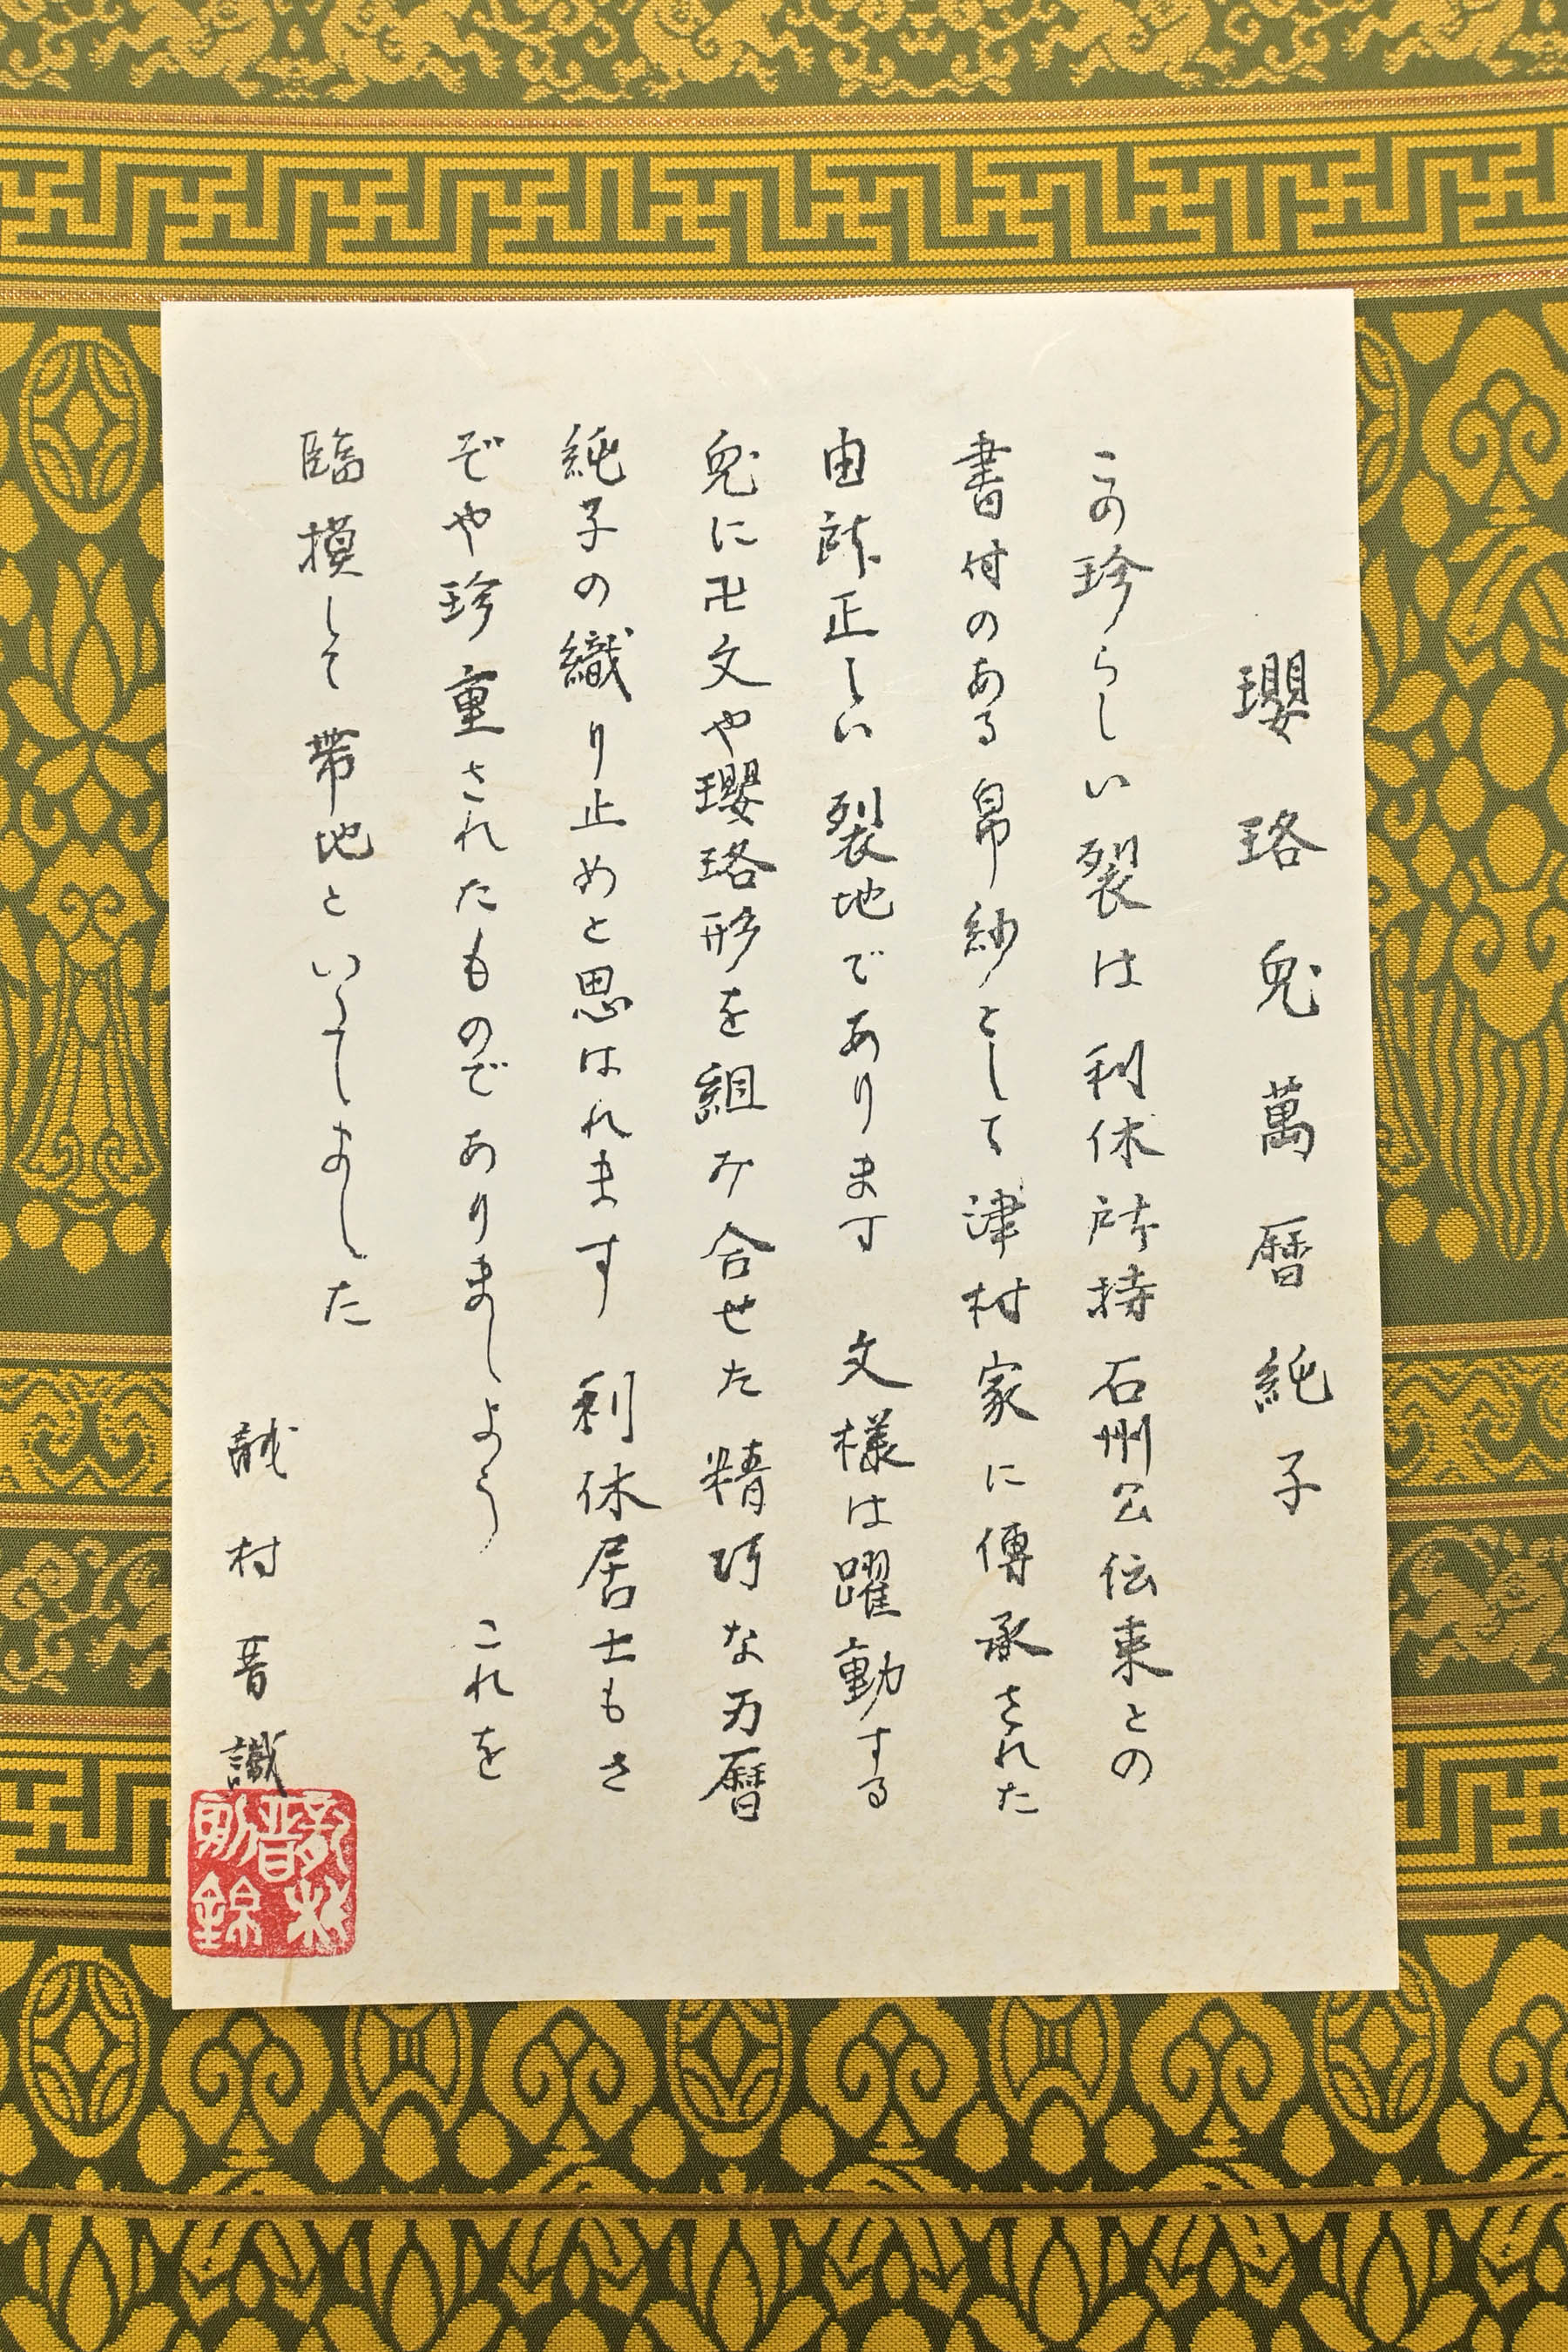 瓔珞兎萬暦純子
この珍らしい裂は利休所持石州公伝来との
書付のある帛紗として津村家に傳承された
由緒正しい裂地であります 文様は躍動する
兎に卍文や瓔珞形を組み合せた精巧な万暦
純子の織り止めと思はれます 利休居士もさ
ぞや珍重されたものでありましよう これを
臨模して帯地といたしました
龍村晋識
龍村晋
製錦